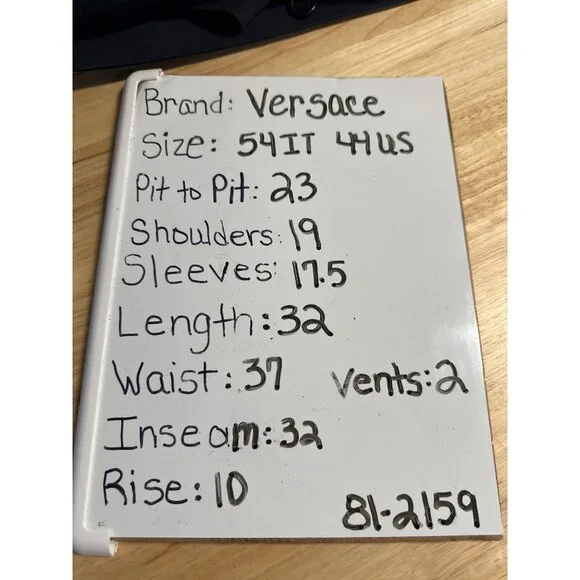 Brand: Versace
Size: 54IT 44US
Pit to Pit: 23
Shoulders: 19
Sleeves: 17.5
Length: 32
Waist: 37 Vents: 2
Inseam: 32
Rise: 10
81-2159